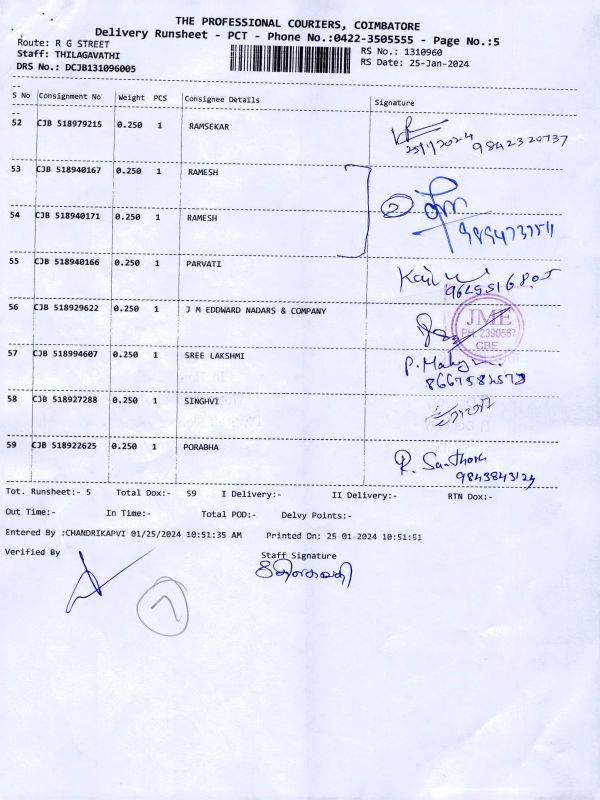 THE PROFESSIONAL COURIERS, COIMBATORE
Delivery Runsheet - PCT - Phone No.:0422-3505555 - Page No.:5
Route: R G STREET
Staff: THILAGAVATHI
DRS No.: DCJB131096005
RS No.: 1310960
RS Date: 25-Jan-2024
S No Consignment No Weight PCS Consignee Details Signature
52 CJB 518979215 0.250 1 RAMSEKAR
25/1/2024 9842320737
53 CJB 518940167 0.250 1 RAMESH
2
54 CJB 518940171 0.250 1 RAMESH
55 CJB 518940166 0.250 1 PARVATI
56 CJB 518929622 0.250 1 J M EDDWARD NADARS & COMPANY
JME
PH: 2390567
CBE
57 CJB 518994607 0.250 1 SREE LAKSHMI
58 CJB 518927288 0.250 1 SINGHVI
59 CJB 518922625 0.250 1 PORABHA
R. Santhosh
Tot. Runsheet:- 5 Total Dox:- 59 I Delivery:- II Delivery:- RTN Dox:-
Out Time:- In Time:- Total POD:- Delvy Points:-
Entered By :CHANDRIKAPVI 01/25/2024 10:51:35 AM Printed On: 25-01-2024 10:51:51
Verified By Staff Signature
7